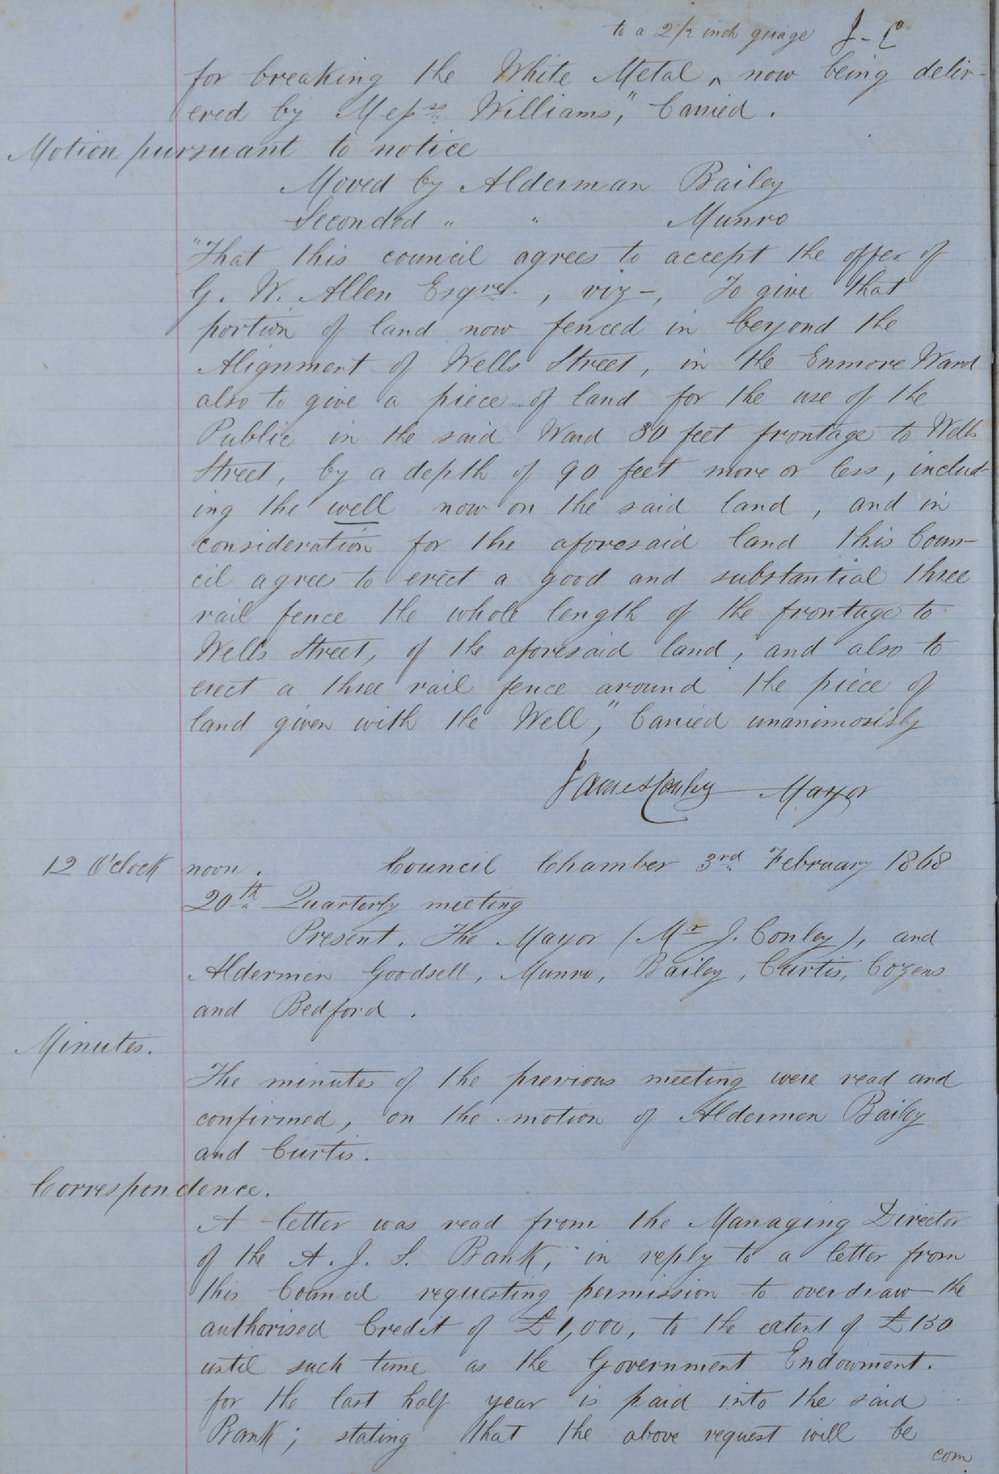 to a 2½ inch guage J-C
for breaking the White Metal ^ now being deliv-
ered by Messrs Williams," Carried.
Motion pursuant to notice
Moved by Alderman Bailey
Seconded " " Munro
"That this council agrees to accept the offer of
G. W. Allen Esqre., viz-, To give that
portion of land now fenced in beyond the
Alignment of Wells Street, in the Enmore Ward
also to give a piece of land for the use of the
Public in the said Ward 30 feet frontage to Wells
Street, by a depth of 90 feet more or less, includ-
ing the well now on the said land, and in
consideration for the aforesaid land this Coun-
cil agrees to erect a good and substantial three
rail fence the whole length of the frontage to
Wells Street, of the aforesaid land, and also to
erect a three rail fence around the piece of
land given with the Well," Carried unanimously
James Conley Mayor
12 O'Clock noon. Council Chamber 3rd February 1868
20th Quarterly meeting
Present. The Mayor (Mr J. Conley), and
Aldermen Goodsell, Munro, Bailey, Curtis, Cozens
and Bedford.
Minutes.
The minutes of the previous meeting were read and
confirmed, on the motion of Aldermen Bailey
and Curtis.
Correspondence.
A letter was read from the Managing Director
of the A. J. S. Bank, in reply to a letter from
this Council requesting permission to overdraw the
authorised Credit of £1,000, to the extent of £150
until such time as the Government Endowment.
for the last half year is paid into the said
Bank; stating that the above request will be
com